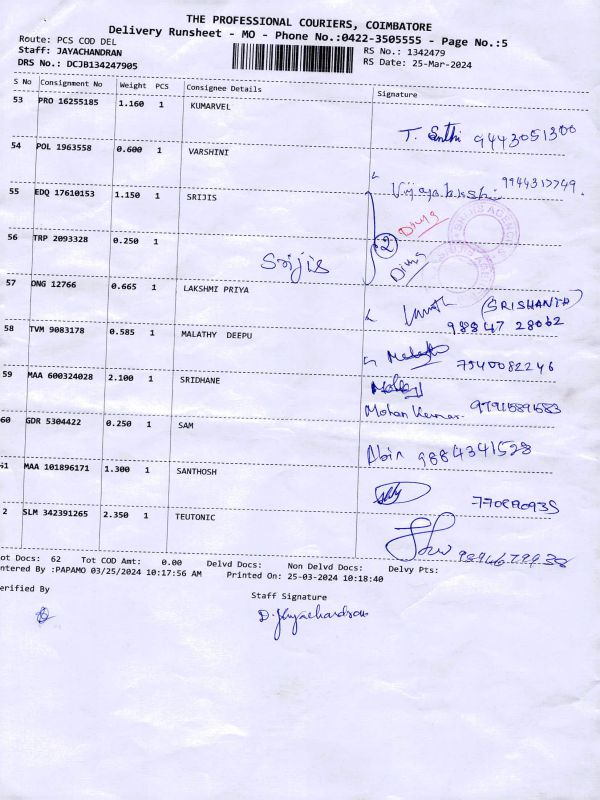 THE PROFESSIONAL COURIERS, COIMBATORE
Delivery Runsheet - MO - Phone No.:0422-3505555 - Page No.:5
Route: PCS COD DEL
Staff: JAYACHANDRAN
RS No.: 1342479
DRS No.: DCJB134247905
RS Date: 25-Mar-2024
S No Consignment No Weight PCS Consignee Details Signature
53 PRO 16255185 1.160 1 KUMARVEL
9443051300
54 POL 1963558 0.600 1 VARSHINI
9944317749.
55 EDQ 17610153 1.150 1 SRIJIS
Divs
2
56 TRP 2093328 0.250 1
Srijis
Divs
57 DNG 12766 0.665 1 LAKSHMI PRIYA
(SRISHANTH)
98847 28062
58 TVM 9083178 0.585 1 MALATHY DEEPU
7540082246
59 MAA 600324028 2.100 1 SRIDHANE
Mohan Kumar
60 GDR 5304422 0.250 1 SAM
Abin 9884341528
61 MAA 101896171 1.300 1 SANTHOSH
2 SLM 342391265 2.350 1 TEUTONIC
ot Docs: 62 Tot COD Amt: 0.00 Delvd Docs: Non Delvd Docs: Delvy Pts:
ntered By :PAPAMO 03/25/2024 10:17:56 AM Printed On: 25-03-2024 10:18:40
erified By
Staff Signature
D. Jayachandran